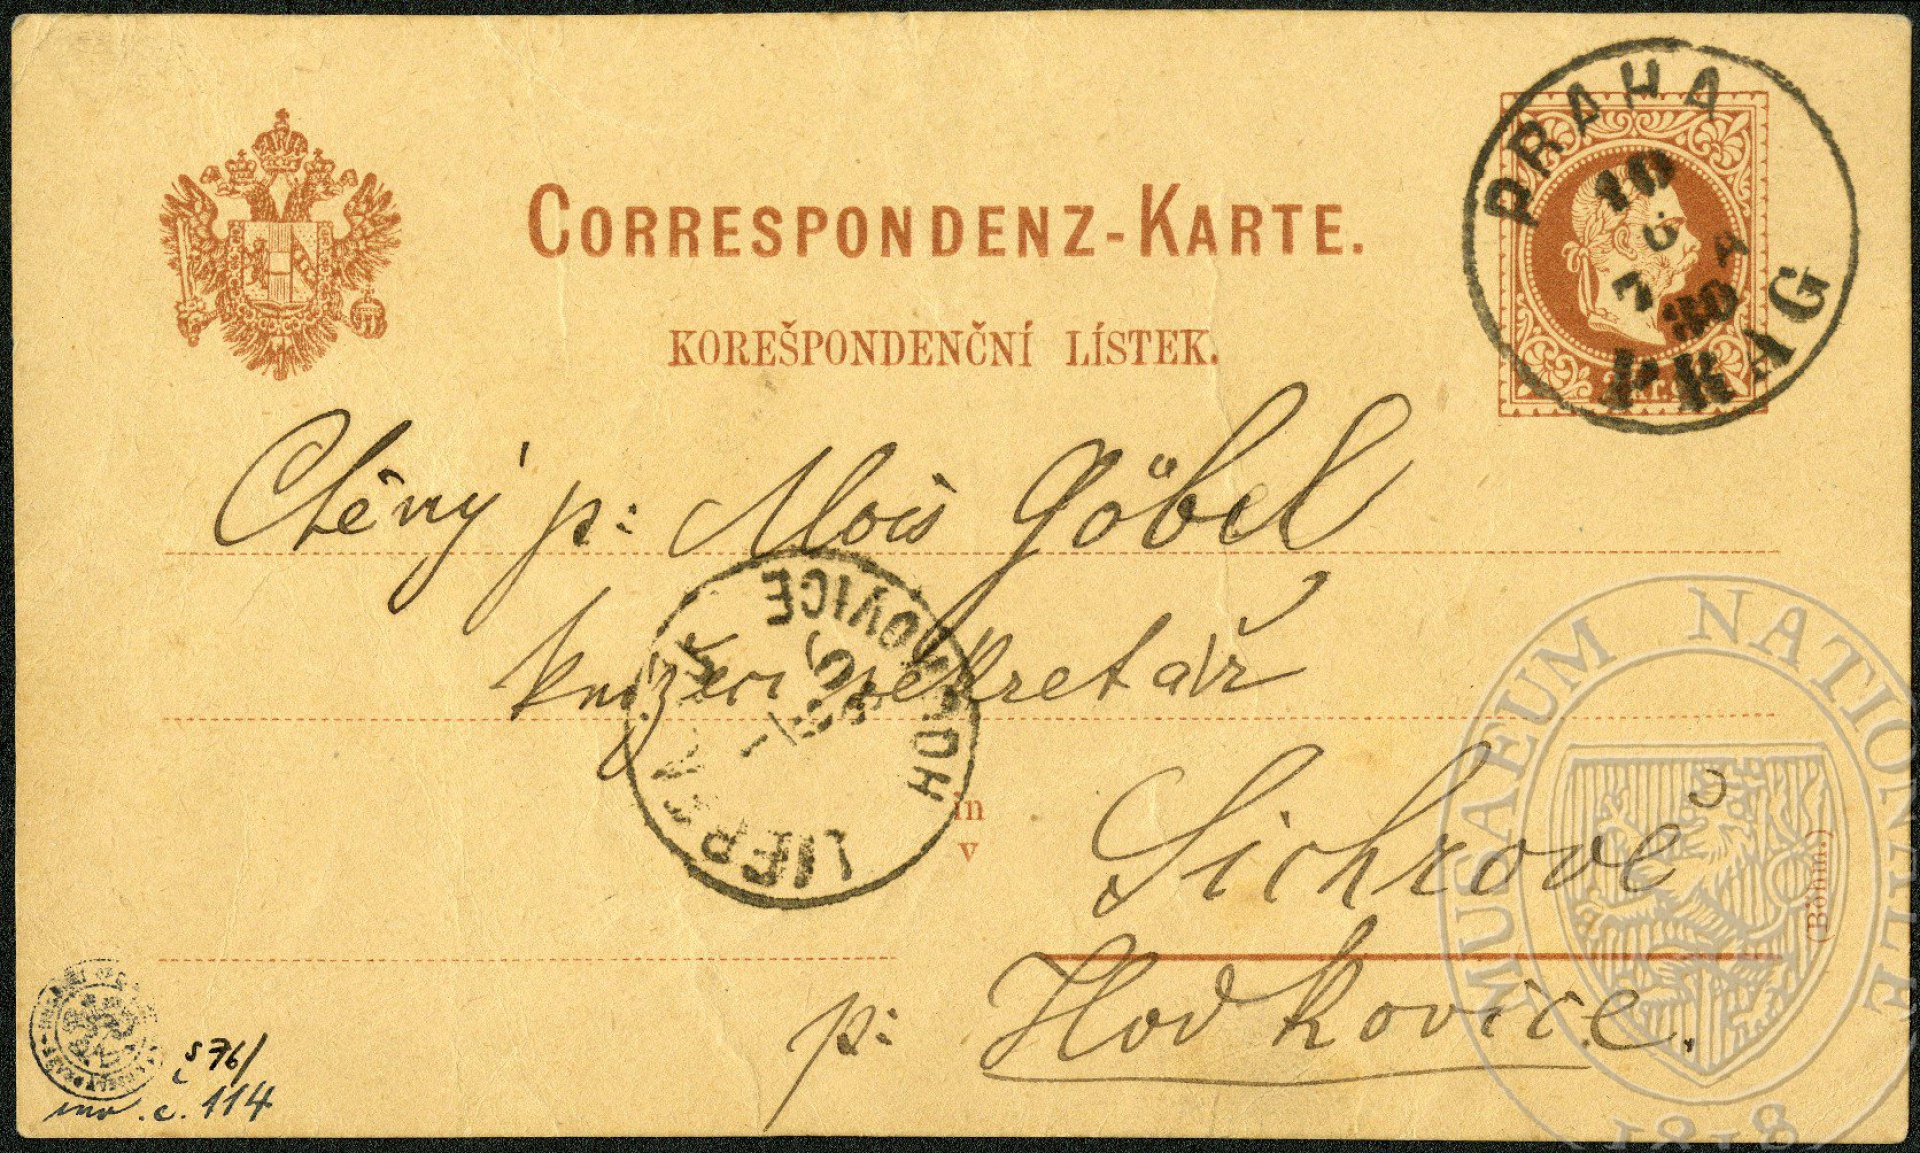 CORRESPONDENZ-KARTE.
KOREŠPONDENČNÍ LÍSTEK.
PRAHA
10
6
7 80 A
PRAG
Ctěný p: Alois Göbel
knížecí sekretář
LIEBENAU
HODKOVICE
in
v
Sichrově
(Böhm.)
p: Hodkovice.
S 76/
inv. č. 114
MUSAEUM NATIONALE
1818